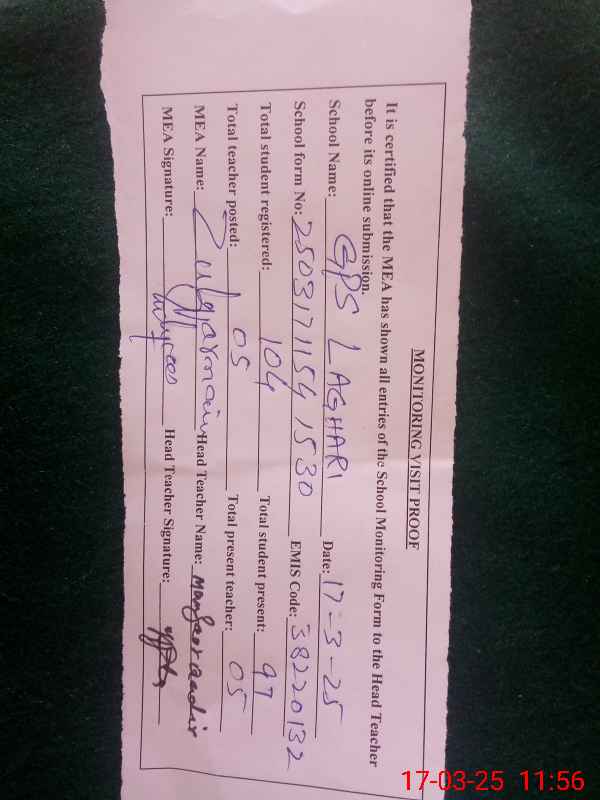 MONITORING VISIT PROOF
It is certified that the MEA has shown all entries of the School Monitoring Form to the Head Teacher
before its online submission.
School Name: GPS LAGHARI Date: 17-3-25
School form No: 25031711541530 EMIS Code: 38220132
Total student registered: 104 Total student present: 97
Total teacher posted: 05 Total present teacher: 05
MEA Name: Zulqarnain Head Teacher Name: Manzoor aadir
MEA Signature: Head Teacher Signature:
17-03-25 11:56